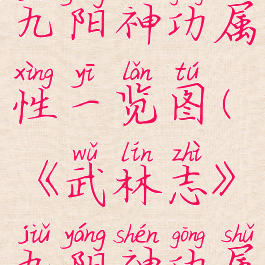 九阳神功属
xìng yī lǎn tú
性一览图（
wǔ lín zhì
《武林志》
jiǔ yáng shén gōng shǔ
九阳神功属